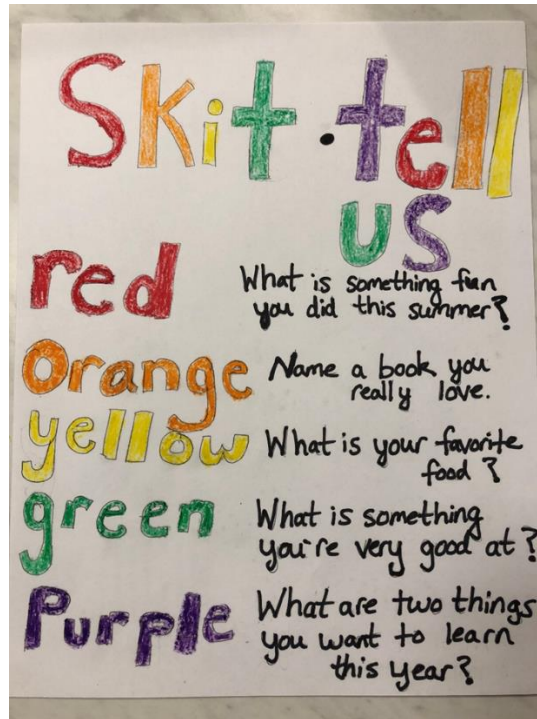 Skit·tell
us
red What is something fun
you did this summer?
Orange Name a book you
really love.
yellow What is your favorite
food?
green What is something
you're very good at?
Purple What are two things
you want to learn
this year?